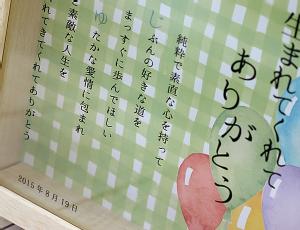 生まれてくれて
ありがとう
じ
純粋で素直な心を持って
じぶんの好きな道を
まっすぐに歩んでほしい
ゆたかな愛情に包まれ
素敵な人生を
れてきてくれてありがとう
2015年8月19日